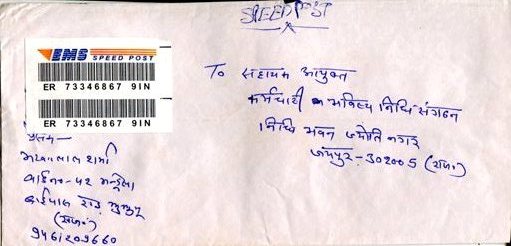 SPEED POST
EMS SPEED POST
ER 73346867 9IN
ER 73346867 9IN
To सहायक आयुक्त
कर्मचारी भविष्य निधि संगठन
निधि भवन ज्योति नगर
जयपुर - 302005 (राज॰)
प्रेषक —
शर्मा
वार्ड नं॰ - 12
रोड
(राज॰)
9461209660